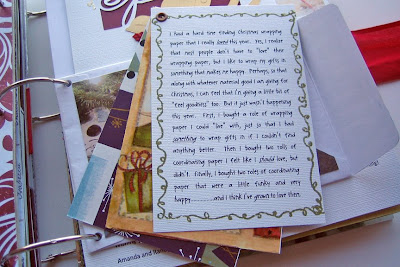 I had a hard time finding Christmas wrapping
paper that I really loved this year. Yes, I realize
that most people don't have to "love" their
wrapping paper, but I like to wrap my gifts in
something that makes me happy. Perhaps, so that
along with whatever material good I am giving for
Christmas, I can feel that I'm giving a little bit of
"feel goodness" too. But it just wasn't happening
this year. First, I bought a role of wrapping
paper I could "live" with, just so that I had
something to wrap gifts in if I couldn't find
anything better. Then I bought two roles of
coordinating paper I felt like I should love, but
didn't. Finally, I bought two roles of coordinating
paper that were a little funky and very
happy..........and I think I've grown to love them.
Amanda and